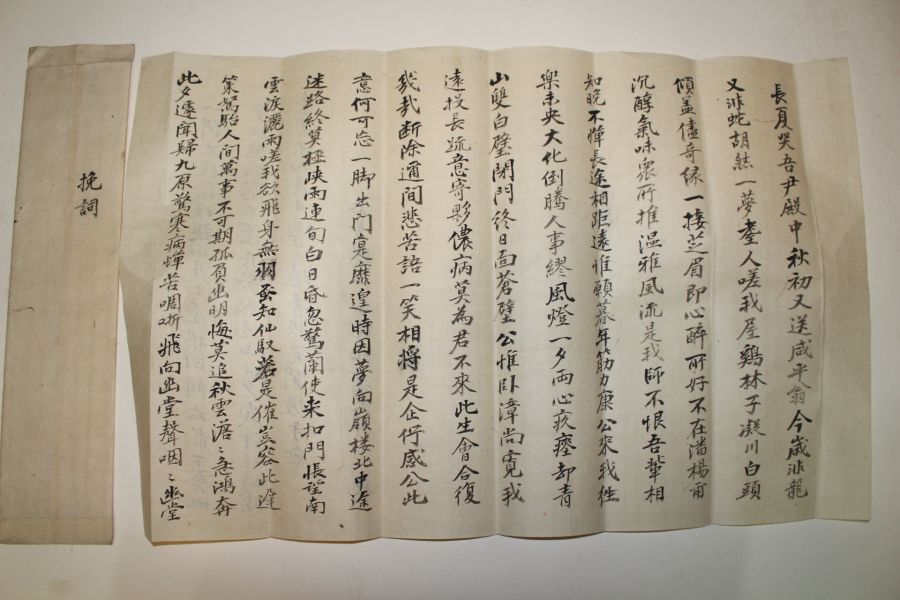 長夏哭吾尹殿中秋初又送咸平翁今歲非龍
又非蛇胡然一夢耋人嗟我屋鷄林子凝川白頭
傾盖儘奇緣一接芝眉即心醉所好不在潘楊
沉醇氣味衆所推溫雅風流是我師不恨吾輩相
知晚不憚長途相距遠惟願暮年筋力康公來我往
樂未央大化倒騰人事繆風燈一夕兩心疚瘞却靑
山雙白璧閉門終日面蒼壁公惟臥漳尚寬我
遠投長疏意寄夥儂病莫為君不來此生會合復
幾哉断除通間悲苦語一笑相將是企佇感公此
意何可忘一脚出門寔靡遑時因夢向嶺樓北中途
迷路終莫極峽雨連旬白日昏忽驚蘭使來扣門悵望南
雲淚灑雨嗟我欲飛身無羽蚤知仙馭若是催豈容此違
策駑駘人間萬事不可期孤負幽明悔莫追秋雲溶〻急鴻奔
此夕遽聞歸九原驚寒病蟬苦啁哳飛向幽堂聲咽〻幽堂
挽詞